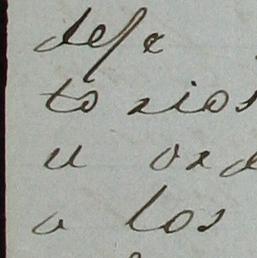 defe
to rios
u orde
a los